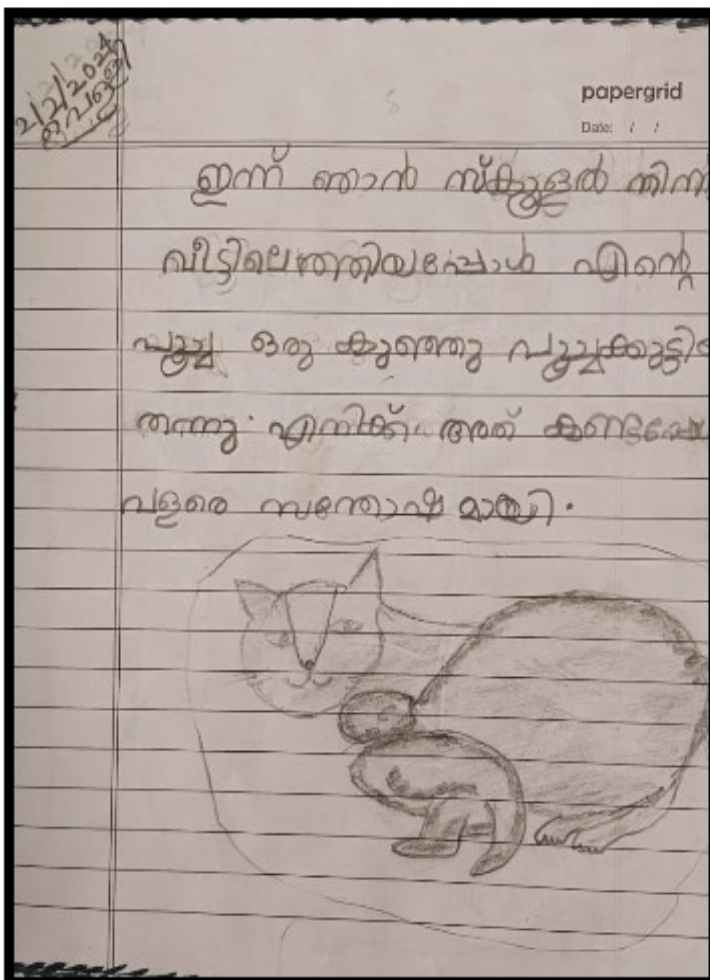 2/2/2024
വെള്ളി
papergrid
Date: / /
ഇന്ന് ഞാൻ സ്ക്കൂളൽ നിന്
വീട്ടിലെത്തതിയപ്പോൾ എന്റെ
പൂച്ച ഒരു കുഞ്ഞു പൂച്ചക്കുട്ടി
തന്നു. എനിക്ക് അത് കണ്ടപ്പോ
വളരെ സന്തോഷമായി.